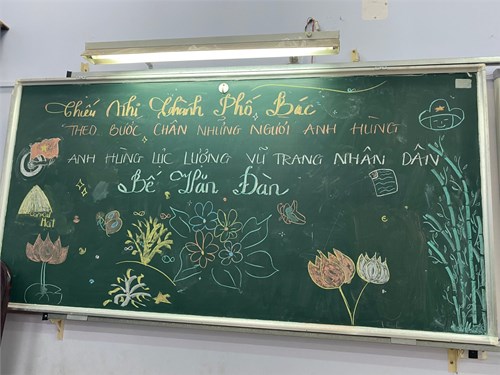 Thiếu Nhi Thành Phố Bác
THEO BƯỚC CHÂN NHỮNG NGƯỜI ANH HÙNG
ANH HÙNG LỰC LƯỢNG VŨ TRANG NHÂN DÂN
Bế Văn Đàn